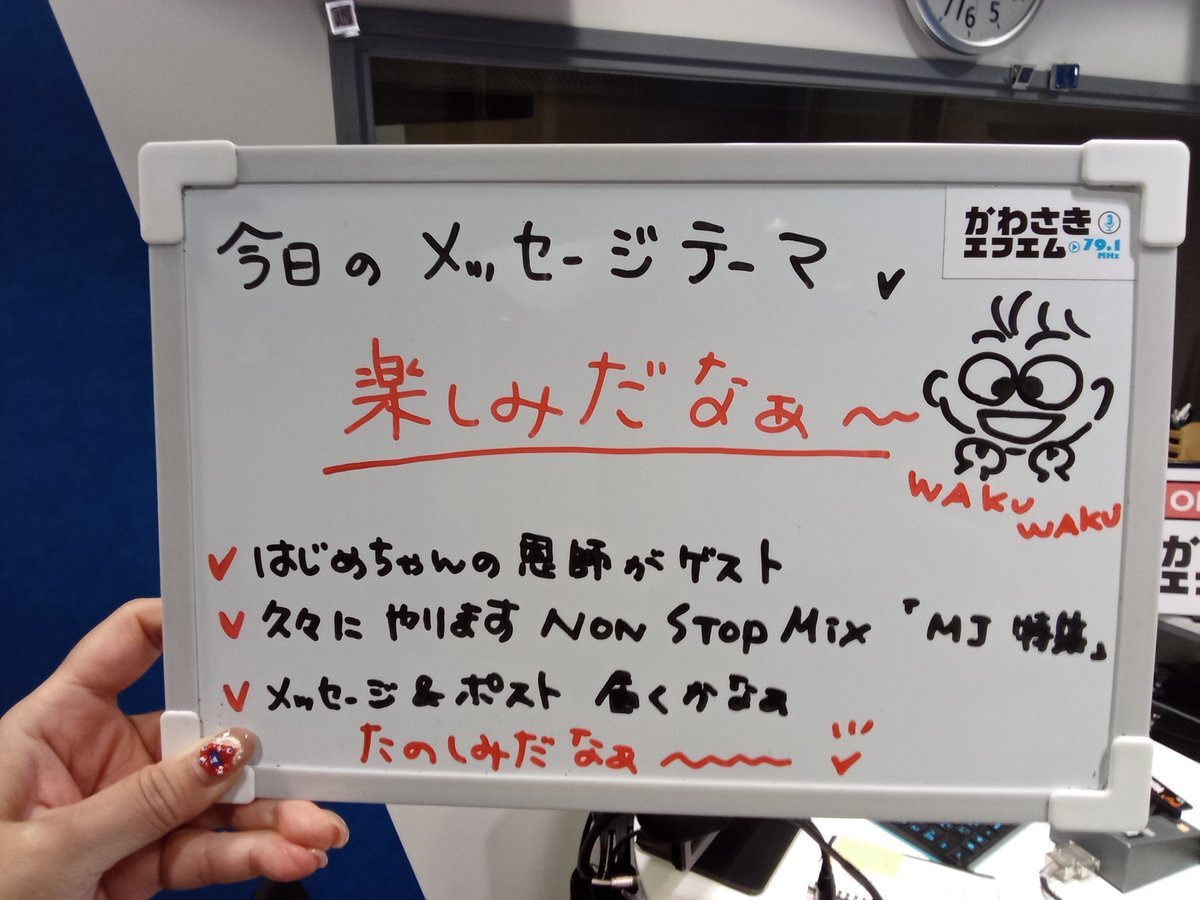 今日のメッセージテーマ
かわさき
エフエム 79.1
MHz
楽しみだなぁ〜
WAKU
WAKU
はじめちゃんの恩師がゲスト
久々にやります NON STOP MIX 「MJ 特集」
メッセージ & ポスト 届くかなぁ
たのしみだなぁ〜〜
6 5
か
エフ